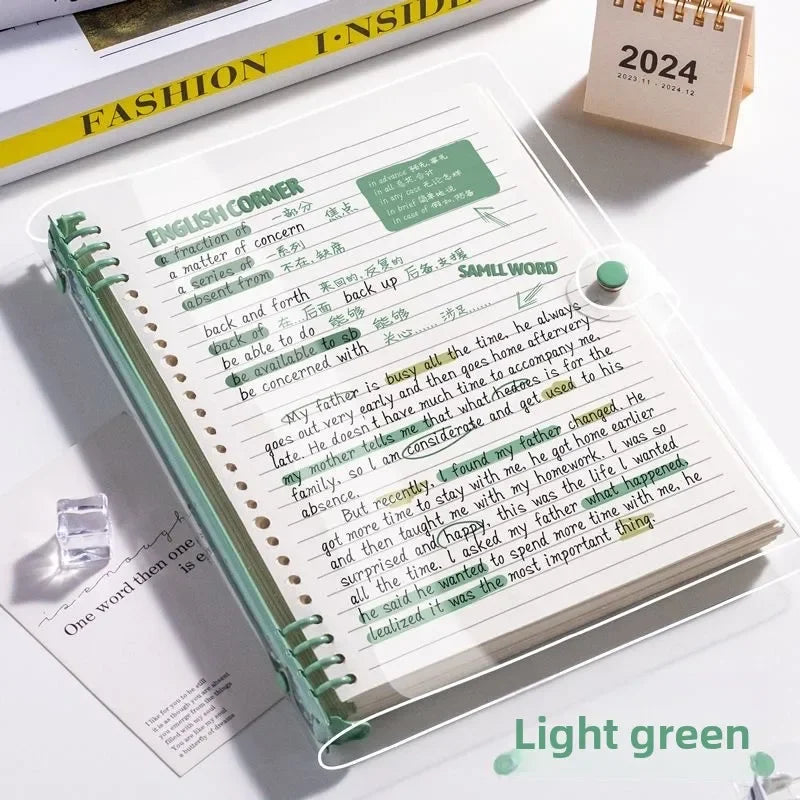 FASHION I·NSIDE
2024
2023.11 - 2024.12
ENGLISH CORNER
a fraction of 一部分
a matter of concern 焦点
a series of 一系列
absent from 不在,缺席
in advance
in all 总共,合计
in any case 无论怎样
in brief 简单地说
in case of 假如,防备
back and forth 来回的,反复的
back up 后备,支援
back of 在...后面
be able to do 能够
be available to sb 能够
be concerned with 关心...... 涉足......
SAMLL WORD
My father is busy all the time. he always
goes out very early and then goes home aftervery
late. He doesn't have much time to accompany me.
my mother tells me that what hedoes is for the
family, so I am considerate and get used to his
absence.
But recently, I found my father changed. He
got more time to stay with me, he got home earlier
and then taught me with my homework. I was so
surprised and happy, this was the life I wanted
all the time. I asked my father what happened
he said he wanted to spend more time with me, he
lealized it was the most important thing.
is enough
One word then one
is e
I like for you to be still
it is as though you are absent
you emerge from the things
filled with my soul
You are like my soul
a butterfly of dreams
Light green